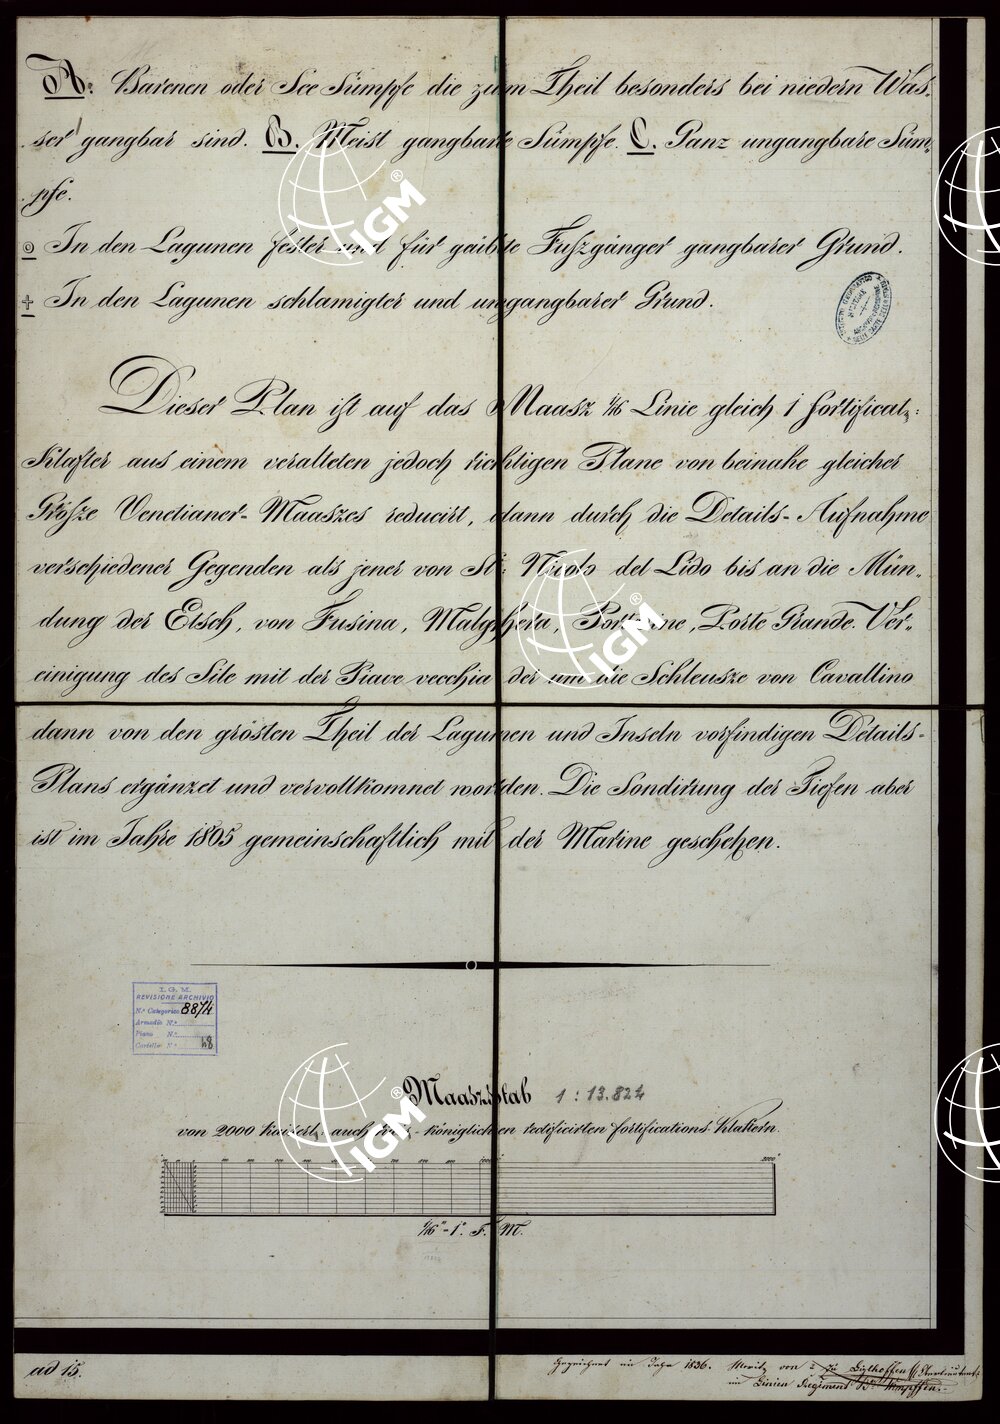 A: Barenen oder See Sümpfe die zum Theil besonders bei niedern Was-
ser gangbar sind. B. Meist gangbare Sümpfe. C. Ganz ungangbare Süm-
pfe.
⊙ In den Lagunen fester und für geübte Fuszgänger gangbarer Grund.
‡ In den Lagunen schlamigter und ungangbarer Grund.
Dieser Plan ist auf das Maasz 1/16 Linie gleich 1 fortificat:
Klafter aus einem veralteten jedoch richtigen Plane von beinahe gleicher
Grösze Venetianer-Maaszes reducirt, dann durch die Details-Aufnahme
verschiedener Gegenden als jener von St: Nicolo del Lido bis an die Mün-
dung der Etsch, von Fusina, Malghera, Porte Grande. Ver-
einigung des Sile mit der Piave vecchia der um die Schleusze von Cavallino
dann von den grösten Theil der Lagunen und Inseln vorfindigen Details-
Plans ergänzet und vervollkomnet worden. Die Sondirung der Tiefen aber
ist im Jahre 1805 gemeinschaftlich mit der Marine geschehen.
I. G. M.
REVISIONE ARCHIVIO
N.º Categorico 8874
Armadio N.º
Piano N.º
Cartella N.º
Maaszstab 1 : 13.824
von 2000 Kaiserl: auch königlichen rectificirten fortifications Klaftern.
2000
1/16" = 1° F. M.
ad 15.
Gezeichnet im Jahre 1836. Moritz von Oberlieutenant
im Linien Regiment Bn Wimpffen.
IGM®
IGM®
IGM®